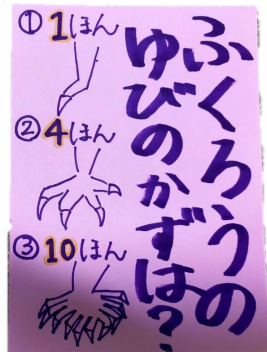 ふくろうの
ゆびのかずは？
①1ほん
②4ほん
③10ほん